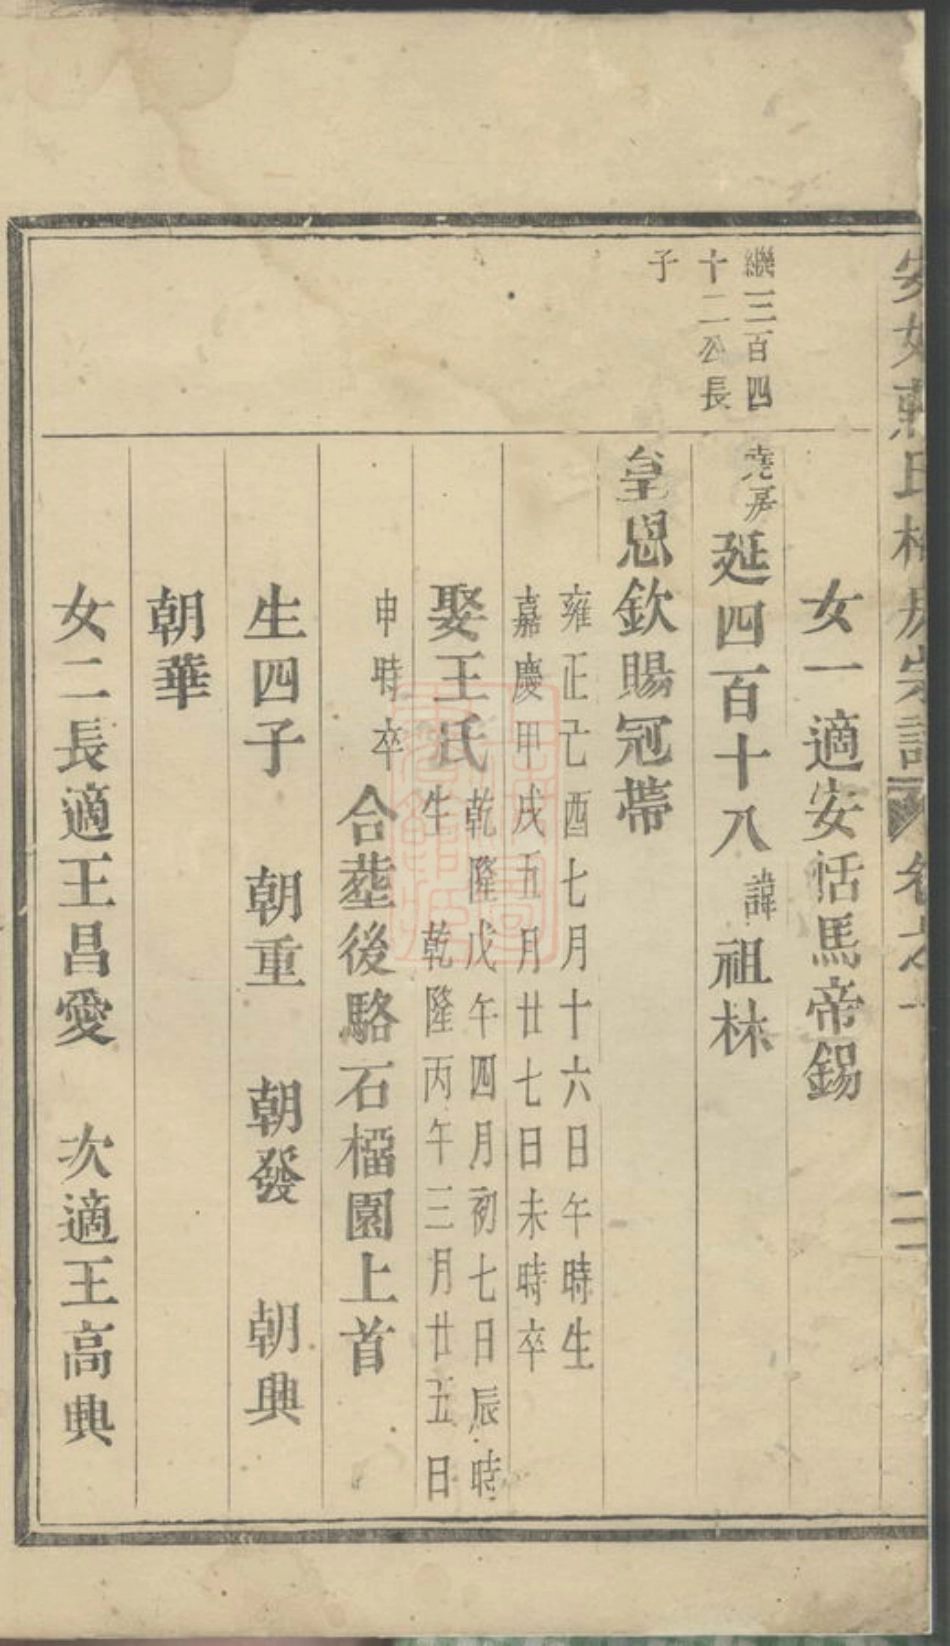 氏 宗譜 卷之一
女一適安恬馬帝錫
繼三百四
十二公長
子
堯房
延四百十八 諱 祖林
皇恩欽賜冠帶
雍正己酉七月十六日午時生
嘉慶甲戌五月廿七日未時卒
娶王氏
乾隆戊午四月初七日辰時
生 乾隆丙午三月廿五日
申時卒
合塟後駱石橊園上首
生四子 朝重 朝發 朝興
朝華
女二長適王昌愛 次適王高典